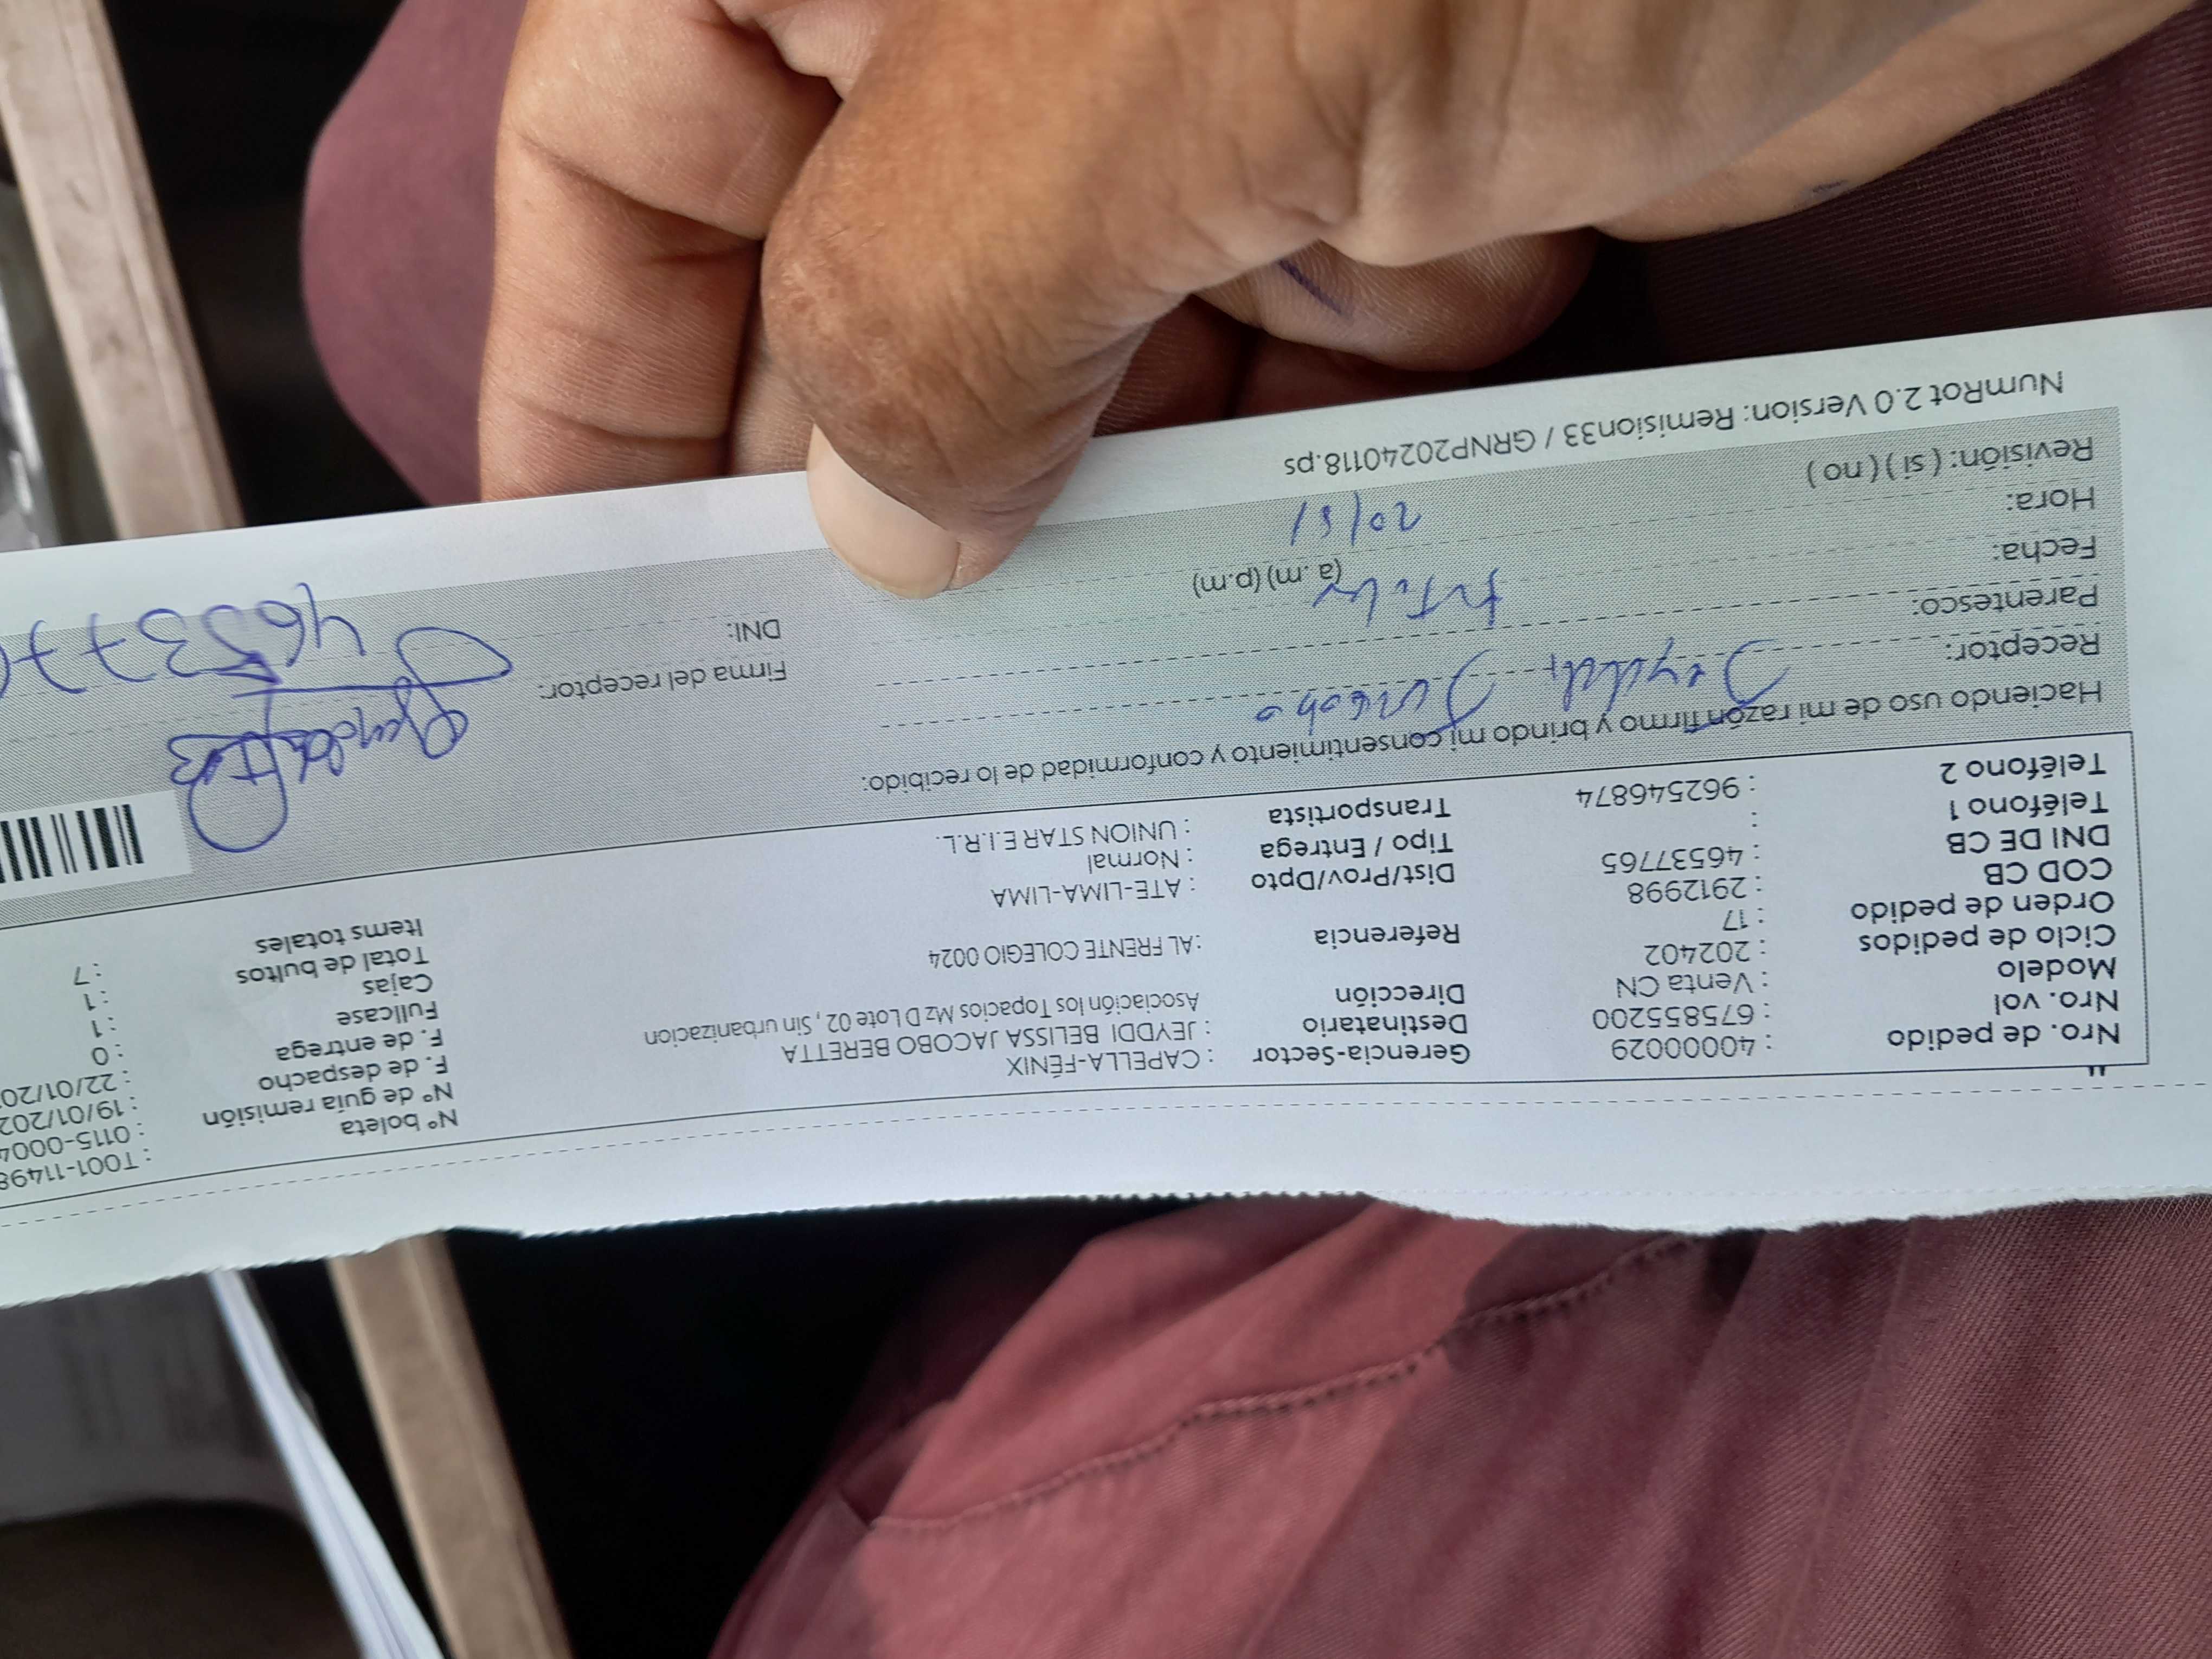 Nro. de pedido : 40000029
Nro. vol : 675855200
Modelo : Venta CN
Ciclo de pedidos : 202402
Orden de pedido : 17
COD CB : 2912998
DNI DE CB : 46537765
Teléfono 1 :
Teléfono 2 : 962546874
Gerencia-Sector : CAPELLA-FÉNIX
Destinatario : JEYDDI BELISSA JACOBO BERETTA
Dirección Asociación los Topacios Mz D Lote 02 , Sin urbanizacion
Referencia : AL FRENTE COLEGIO 0024
Dist/Prov/Dpto : ATE-LIMA-LIMA
Tipo / Entrega : Normal
Transportista : UNION STAR E.I.R.L.
N° boleta : T001-11498
N° de guía remisión : 0115-0004
F. de despacho : 19/01/202
F. de entrega : 22/01/20
Fullcase : 0
Cajas : 1
Total de bultos : 1
Items totales : 7
Haciendo uso de mi razón firmo y brindo mi consentimiento y conformidad de lo recibido:
Receptor: Jeyddi Jacobo
Parentesco: titular
Fecha:
Hora: 20/51 (a .m) (p.m)
Revisión: ( si ) ( no )
Firma del receptor:
DNI: 465377
NumRot 2.0 Version: Remision33 / GRNP20240118.ps